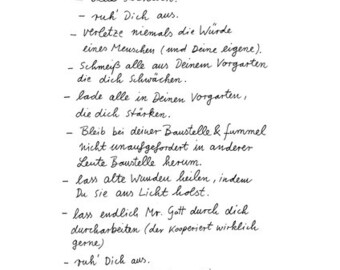 - ruh' Dich aus.
- verletze niemals die Würde
eines Menschen (und Deine eigene).
- Schmeiß alle aus Deinem Vorgarten
die dich schwächen.
- lade alle in Deinen Vorgarten,
die dich stärken.
- Bleib bei deiner Baustelle & fummel
nicht unaufgefordert in anderer
Leute Baustelle herum.
- lass alte Wunden heilen, indem
Du sie ans Licht holst.
- lass endlich Mr. Gott durch dich
durcharbeiten (der kooperiert wirklich
gerne)
- ruh' Dich aus.